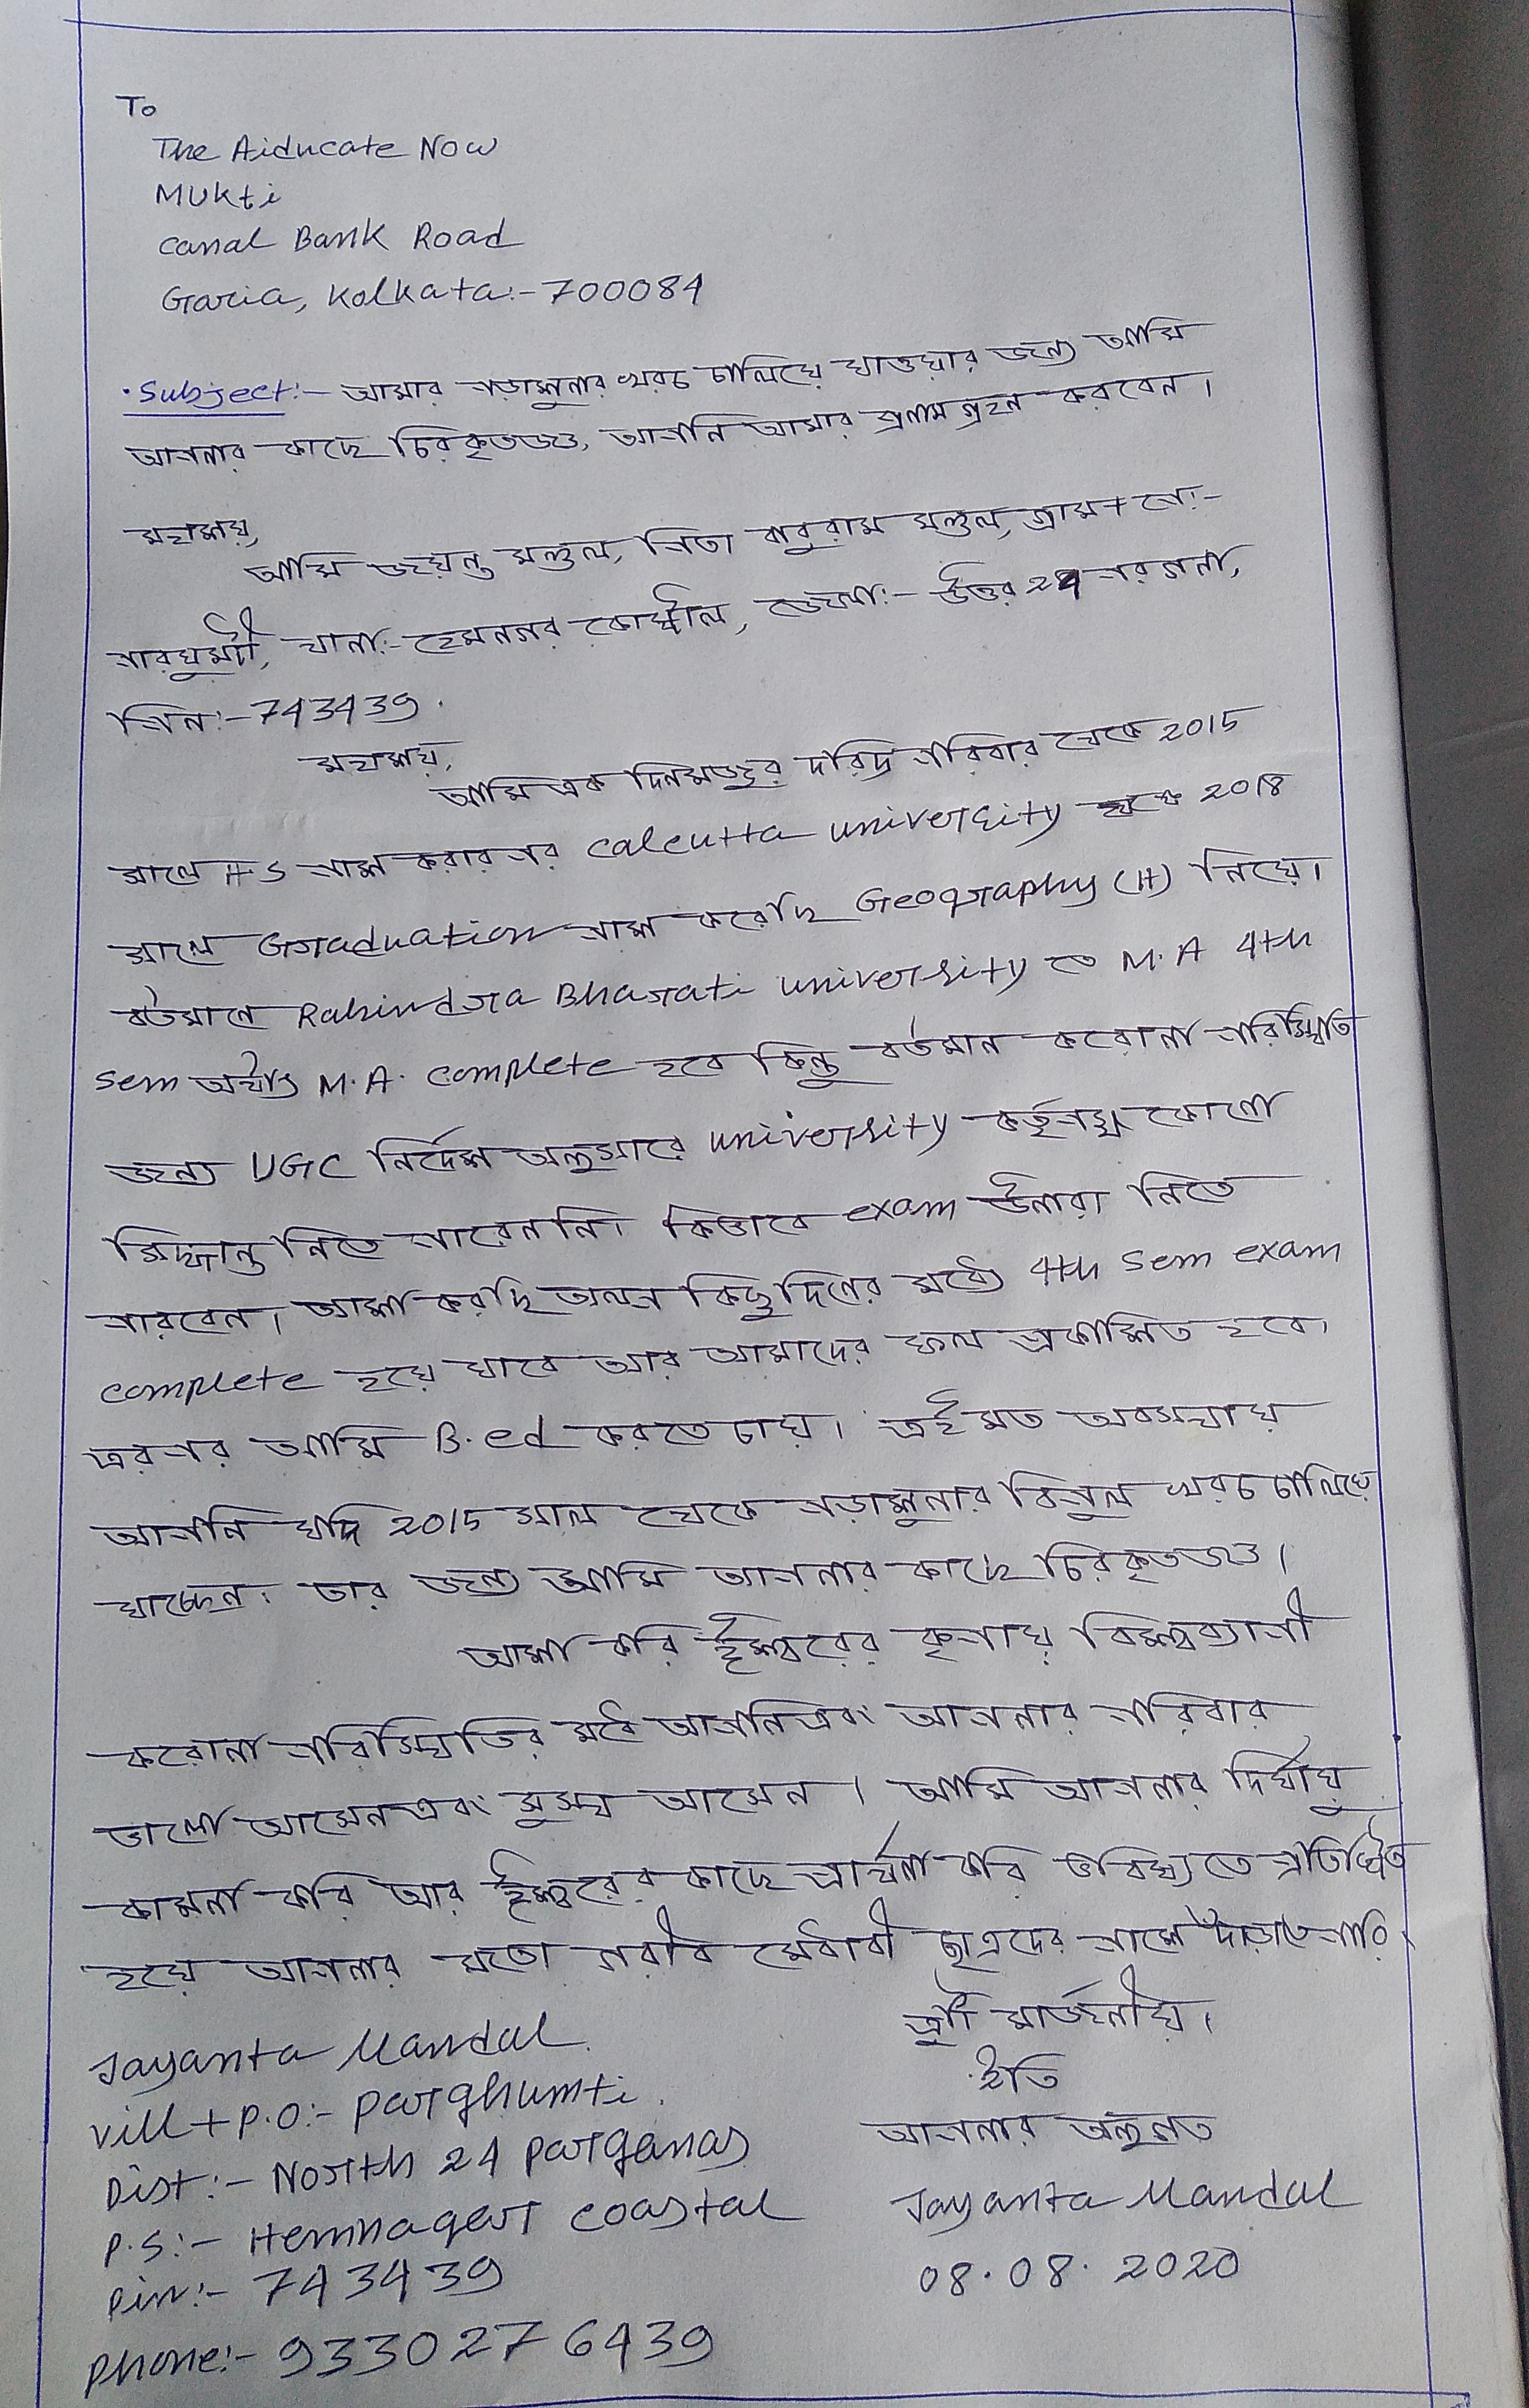 To
The Aiducate Now
Mukti
Canal Bank Road
Garia, Kolkata:-700084
Subject:- আমার পড়াশুনার খরচ চালিয়ে যাওয়ার জন্য আমি
আপনার কাছে চিরকৃতজ্ঞ, আপনি আমার প্রনাম গ্রহন করবেন।
মহাশয়,
আমি জয়ন্ত মন্ডল, পিতা বাবুরাম মন্ডল, গ্রাম + পো:-
পারঘুমটী, থানা:- হেমনগর কোস্টাল, জেলা:- উত্তর 24 পরগনা,
পিন:-743439.
মহাশয়,
আমি এক দিনমজুর দরিদ্র পরিবার থেকে 2015
সালে H.S পাশ করার পর Calcutta University 2018
সালে Graduation পাশ করেছি Geography (H) নিয়ে।
বর্তমানে Rabindra Bharati University তে M.A 4th
Sem অর্থাৎ M.A. Complete হবে কিন্তু বর্তমান করোনা পরিস্থিতি
জন্য UGC নির্দেশ অনুসারে University কর্তৃপক্ষ কোনো
সিদ্ধান্ত নিতে পারেননি। কিভাবে exam উনারা নিতে
পারবেন। আশা করছি অল্প কিছু দিনের মধ্যে 4th Sem exam
Complete হয়ে যাবে আর আমাদের ফল প্রকাশিত হবে।
এরপর আমি B.ed করতে চায়। এই মত অবস্থায়
আপনি যদি 2015 সাল থেকে পড়াশুনার বিপুল খরচ চালিয়ে
যাচ্ছেন। তার জন্য আমি আপনার কাছে চিরকৃতজ্ঞ।
আশা করি ঈশ্বরের কৃপায় বিশ্বব্যাপী
করোনা পরিস্থিতির মধ্যে আপনি এবং আপনার পরিবার
ভালো আসেন এবং সুস্থ আসেন। আমি আপনার দির্ঘায়ু
কামনা করি আর ঈশ্বরের কাছে প্রার্থনা করি ভবিষ্যতে প্রতিষ্ঠিত
হয়ে আপনার মতো গরীব মেধাবী ছাত্রদের পাশে দাঁড়াতে পারি।
ত্রুটী মার্জনীয়।
ইতি
আপনার অনুগত
Jayanta Mandal
08.08.2020
Jayanta Mandal
Vill + P.O:- Parghumti
Dist:- North 24 Parganas
P.S:- Hemnagar Coastal
Pin:- 743439
Phone:- 9330276439